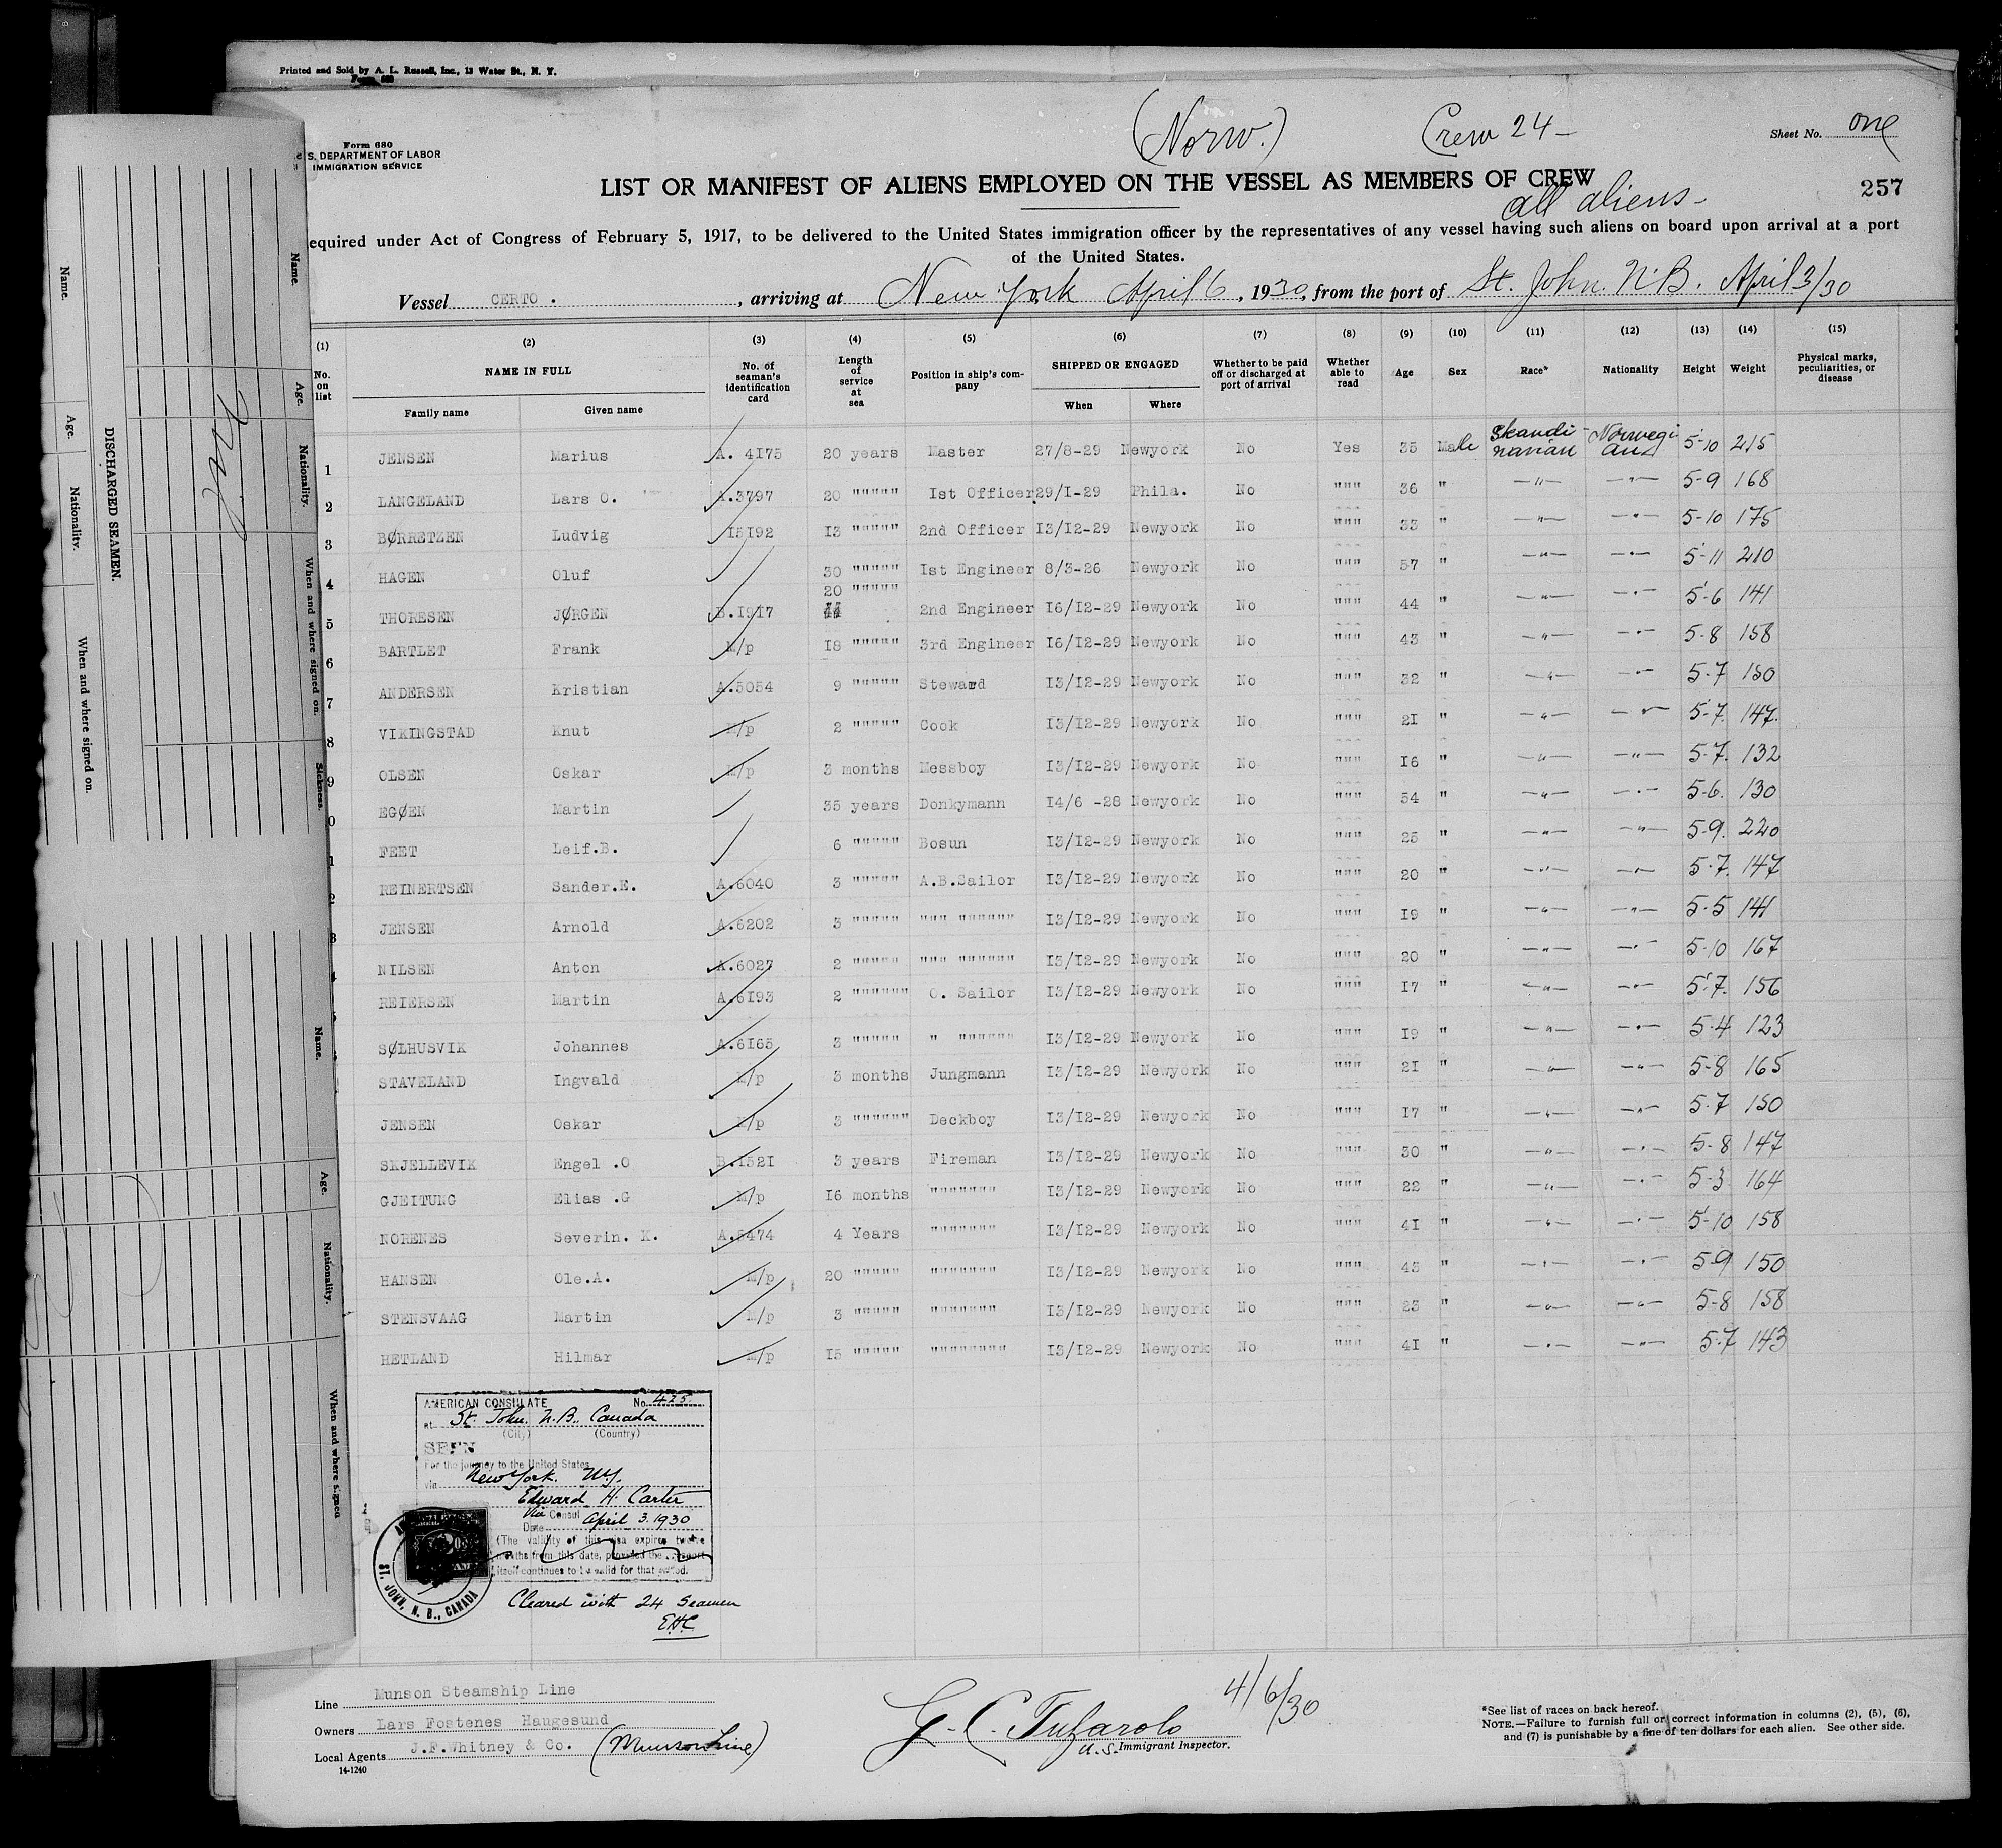 Printed and Sold by A. L. Russell, Inc., 13 Water St., N. Y.
Form 680
(Norw.) Crew 24- Sheet No. one
Form 680
S. DEPARTMENT OF LABOR
IMMIGRATION SERVICE
LIST OR MANIFEST OF ALIENS EMPLOYED ON THE VESSEL AS MEMBERS OF CREW
all aliens-
257
equired under Act of Congress of February 5, 1917, to be delivered to the United States immigration officer by the representatives of any vessel having such aliens on board upon arrival at a port
of the United States.
Vessel CERTO. , arriving at New York April 6, 1930, from the port of St. John. N.B. April 3/30
(1) (2) (3) (4) (5) (6) (7) (8) (9) (10) (11) (12) (13) (14) (15)
No. on list NAME IN FULL Family name Given name No. of seaman's identification card Length of service at sea Position in ship's company SHIPPED OR ENGAGED When Where Whether to be paid off or discharged at port of arrival Whether able to read Age Sex Race* Nationality Height Weight Physical marks, peculiarities, or disease
1 JENSEN Marius A. 4175 20 years Master 27/8-29 Newyork No Yes 35 Male Skandinavian Norwegian 5-10 215
2 LANGELAND Lars O. A.3797 20 """"" Ist Officer 29/I-29 Phila. No """ 36 " -"- -"- 5-9 168
3 BØRRETZEN Ludvig I5I92 I3 """"" 2nd Officer I3/I2-29 Newyork No """ 33 " -"- -"- 5-10 175
4 HAGEN Oluf 30 """"" Ist Engineer 8/3-26 Newyork No """ 57 " -"- -"- 5-11 210
5 THORESEN JØRGEN B.I9I7 20 """"" 2nd Engineer I6/I2-29 Newyork No """ 44 " -"- -"- 5-6 141
6 BARTLET Frank M/p I8 """"" 3rd Engineer I6/I2-29 Newyork No """ 43 " -"- -"- 5-8 158
7 ANDERSEN Kristian A.5054 9 """"" Steward I3/I2-29 Newyork No """ 32 " -"- -"- 5-7 150
8 VIKINGSTAD Knut M/p 2 """"" Cook I3/I2-29 Newyork No """ 2I " -"- -"- 5-7. 147.
9 OLSEN Oskar M/p 3 months Messboy I3/I2-29 Newyork No """ I6 " -"- -"- 5-7. 132
0 EGØEN Martin 35 years Donkymann I4/6 -28 Newyork No """ 54 " -"- -"- 5-6. 130
1 FEET Leif.B. 6 """"" Bosun I3/I2-29 Newyork No """ 25 " -"- -"- 5-9. 220
2 REINERTSEN Sander.E. A.6040 3 """"" A.B.Sailor I3/I2-29 Newyork No """ 20 " -"- -"- 5-7. 147
3 JENSEN Arnold A.6202 3 """"" """ """""" I3/I2-29 Newyork No """ I9 " -"- -"- 5-5 141
NILSEN Anton A.6027 2 """"" """ """""" I3/I2-29 Newyork No """ 20 " -"- -"- 5-10 167
REIERSEN Martin A.6I93 2 """""" O. Sailor I3/I2-29 Newyork No """ I7 " -"- -"- 5-7. 156
SØLHUSVIK Johannes A.6I65 3 """"" " """""" I3/I2-29 Newyork No """ I9 " -"- -"- 5-4 123
STAVELAND Ingvald M/p 3 months Jungmann I3/I2-29 Newyork No """ 2I " -"- -"- 5-8 165
JENSEN Oskar M/p 3 """""" Deckboy I3/I2-29 Newyork No """ I7 " -"- -"- 5-7 150
SKJELLEVIK Engel .O B.I52I 3 years Fireman I3/I2-29 Newyork No """ 30 " -"- -"- 5-8 147
GJEITUNG Elias .G M/p I6 months """"""" I3/I2-29 Newyork No """ 22 " -"- -"- 5-3 164
NORENES Severin. K. 4 Years """"""" I3/I2-29 Newyork No """ 4I " -"- -"- 5-10 158
HANSEN Ole.A. M/p 20 """"" """"""" I3/I2-29 Newyork No """ 43 " -"- -"- 5-9 150
STENSVAAG Martin M/p 3 """"" """"""" I3/I2-29 Newyork No """ 23 " -"- -"- 5-8 158
HETLAND Hilmar M/p I5 """"" """""""" I3/I2-29 Newyork No """ 4I " -"- -"- 5-7 143
AMERICAN CONSULATE No. 425
at St. John. N.B., Canada
(City) (Country)
SEEN
For the journey to the United States
via New York. N.Y.
Edward H. Carter
Vice Consul
Date April 3. 1930
(The validity of this visa expires twelve
months from this date, provided the passport
itself continues to be valid for that period.
ST. JOHN, N. B., CANADA
Cleared with 24 Seamen
E.H.C
Line Munson Steamship Line
Owners Lars Fostenes Haugesund
Local Agents J.F.Whitney & Co. (Munson Line)
14-1240
G. C. Tufarolo 4/6/30
U.S. Immigrant Inspector.
*See list of races on back hereof.
NOTE.—Failure to furnish full or correct information in columns (2), (5), (6),
and (7) is punishable by a fine of ten dollars for each alien. See other side.
DISCHARGED SEAMEN.
Name. Age. Nationality. When and where signed on.
Name. Age. Nationality. When and where signed on. Sickness.
Name. Age. Nationality. When and where signed